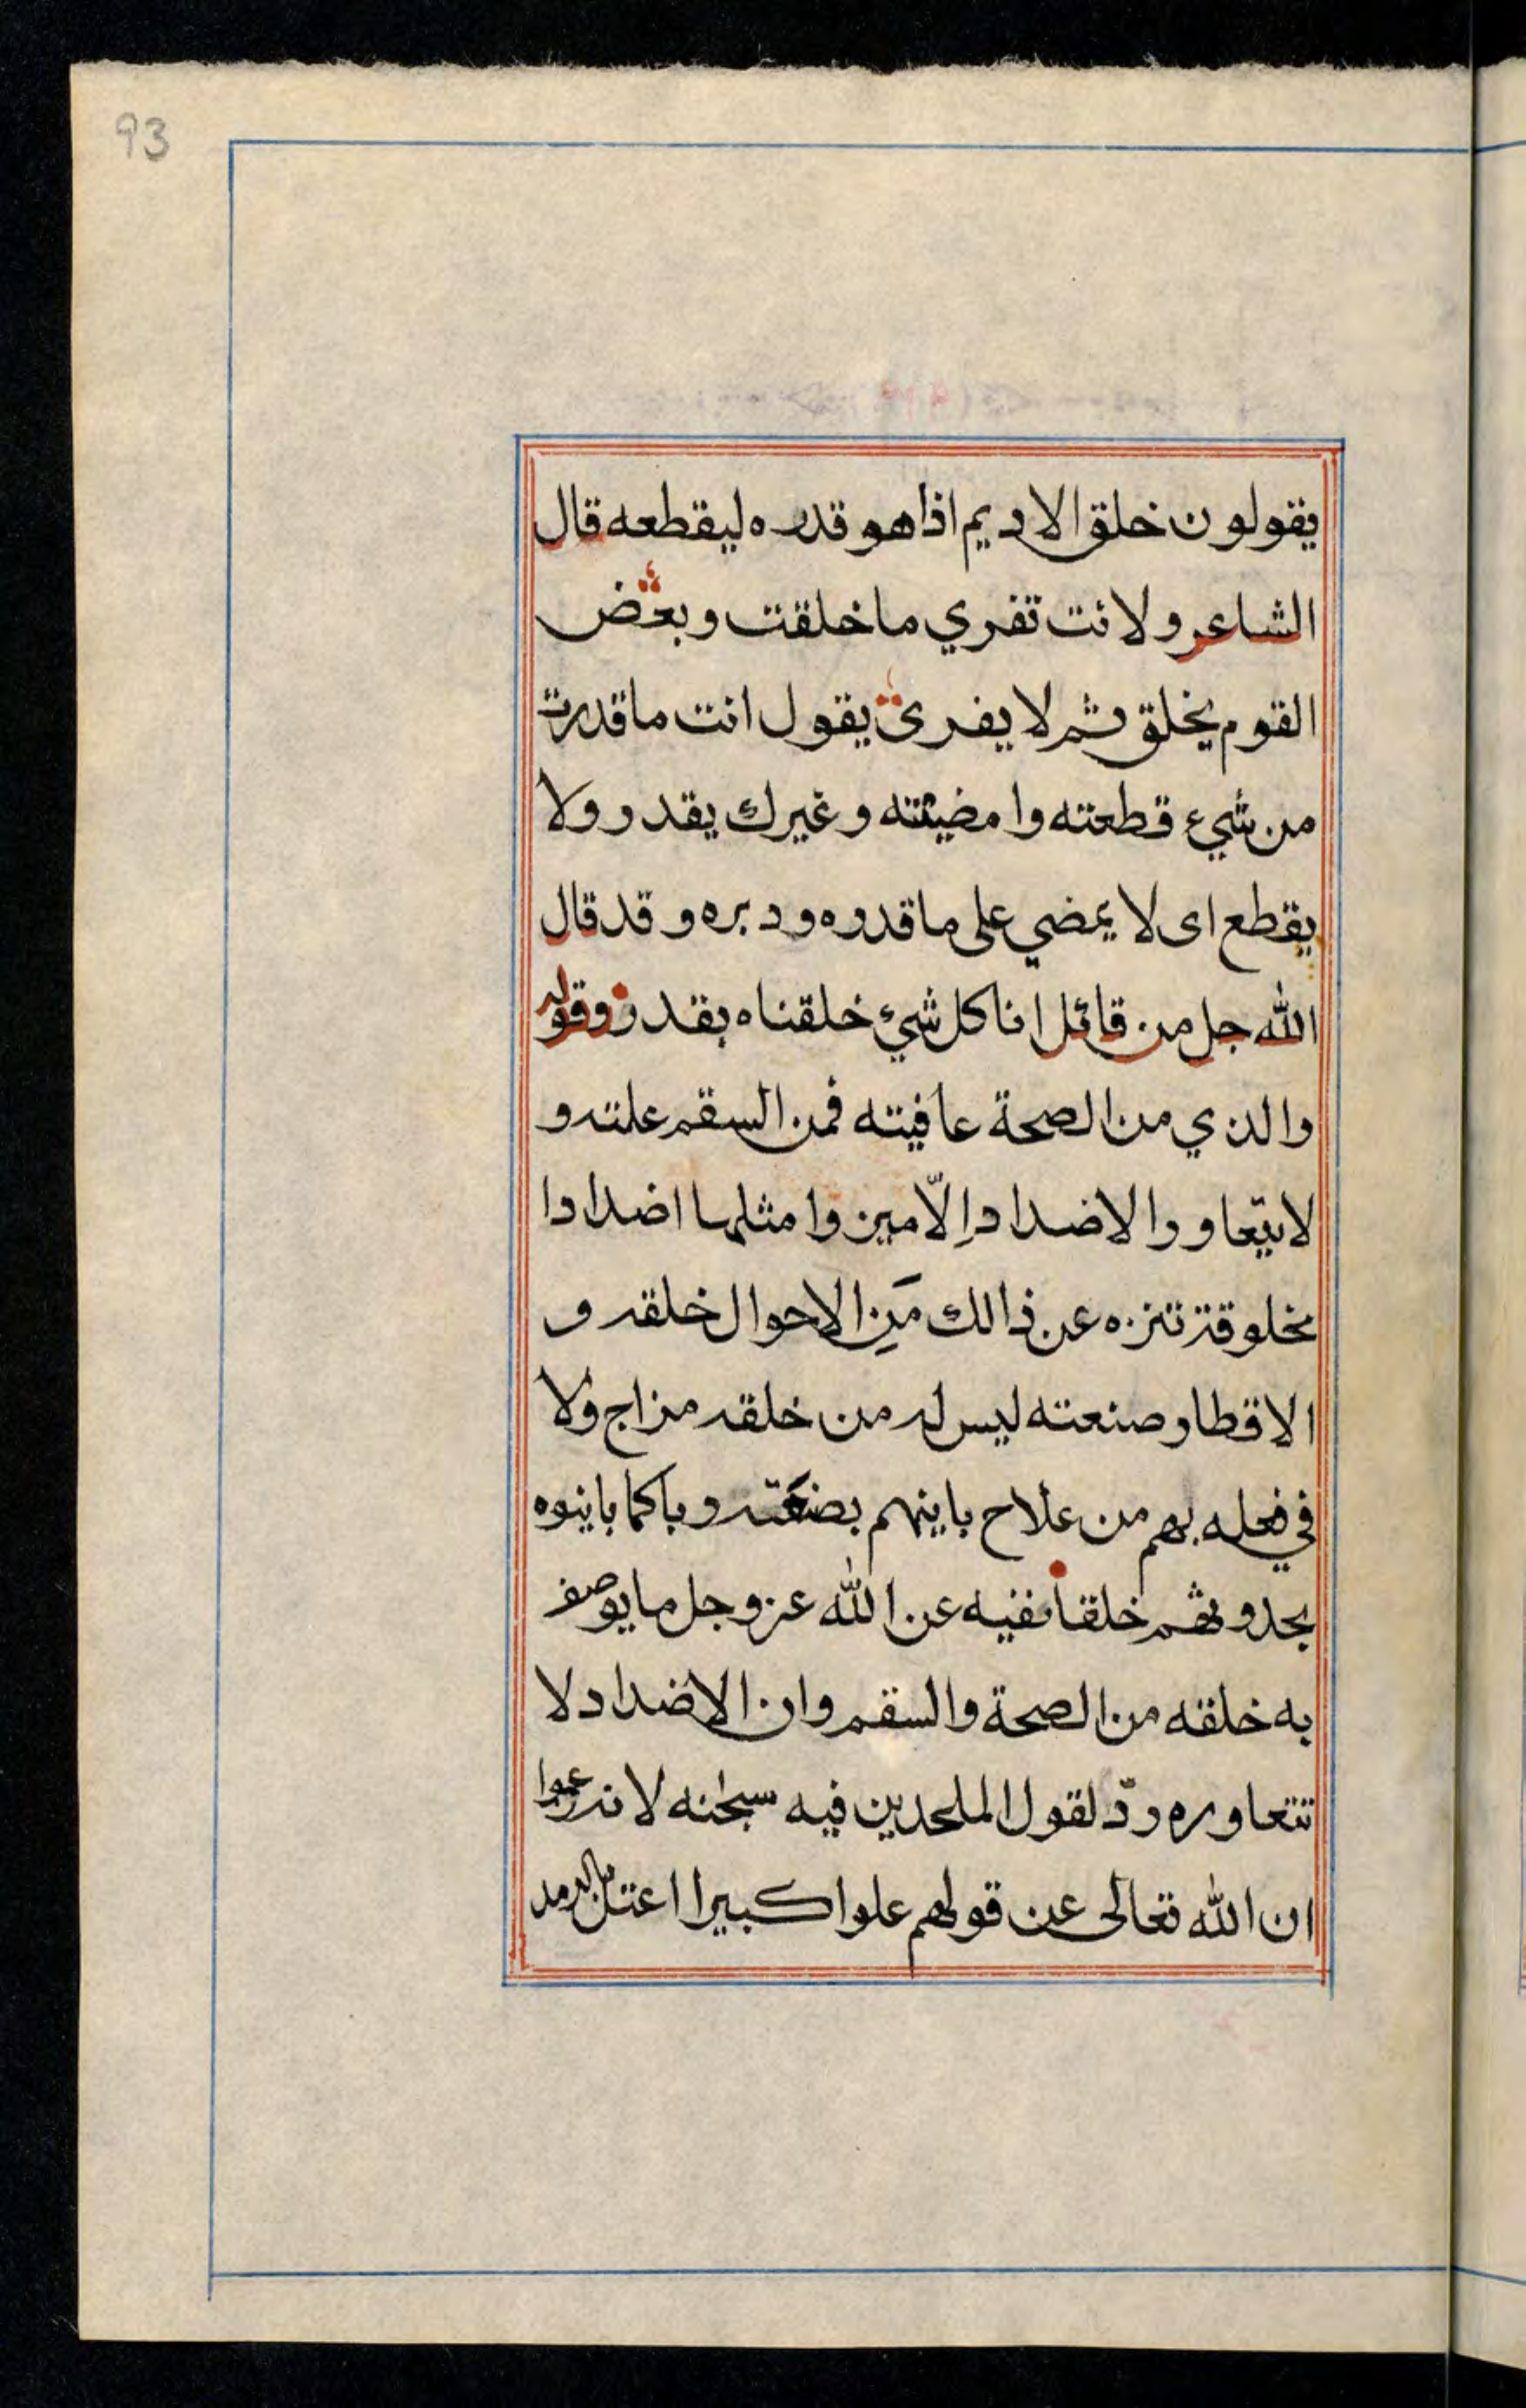 93
يقولون خلق الاديم اذا هو قدره ليقطعه قال
الشاعر ولانت تفري ما خلقت وبعض
القوم يخلق ثم لا يفرى يقول انت ما قدرت
من شيء قطعته وامضيته وغيرك يقدر ولا
يقطع اى لا يمضي على ما قدره ودبره وقد قال
الله جل من قائل انا كل شيء خلقناه بقدر وقوله
والذي من الصحة عافيته فمن السقم علته و
لا يتعاور الاضداد الّا مين وامثلها اضدادا
مخلوقة تنزه عن ذالك مَنِ الاحوال خلقه و
الاقطار صنعته ليس له من خلقه مزاج ولا
في فعله بهم من علاج باينهم بصنعته وباكما باينوه
بحدوثهم خلقا نفيه عن الله عز وجل ما يوصف
به خلقه من الصحة والسقم وان الاضداد لا
تتعاوره ردّ لقول الملحدين فيه سبحنه لانه زعموا
ان الله تعالى عن قولهم علوا كبيرا اعتل بالرمد